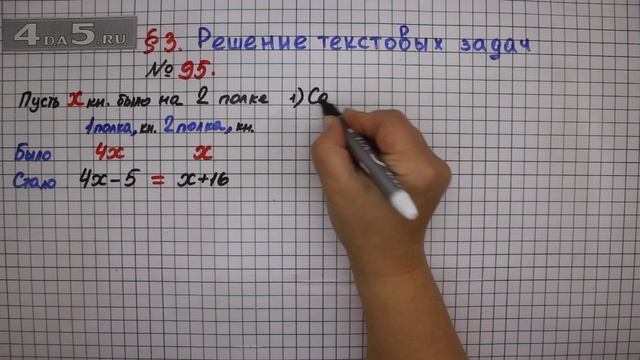 4DA5.RU
§3. Решение текстовых задач
№95.
Пусть x кн. было на 2 полке 1) Со
1 полка, кн. 2 полка, кн.
Было 4x x
Стало 4x-5 = x+16